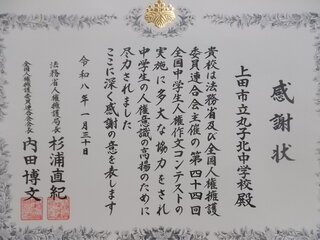 感謝状
上田市立丸子北中学校 殿
貴校は法務省及び全国人権擁護
委員連合会主催の第四十四回
全国中学生人権作文コンテストの
実施に多大な協力をされ
中学生の人権意識の高揚のために
尽力されました
ここに深く感謝の意を表します
令和八年一月三十日
法務省人権擁護局長
杉浦直紀
全国人権擁護委員連合会会長
内田博文